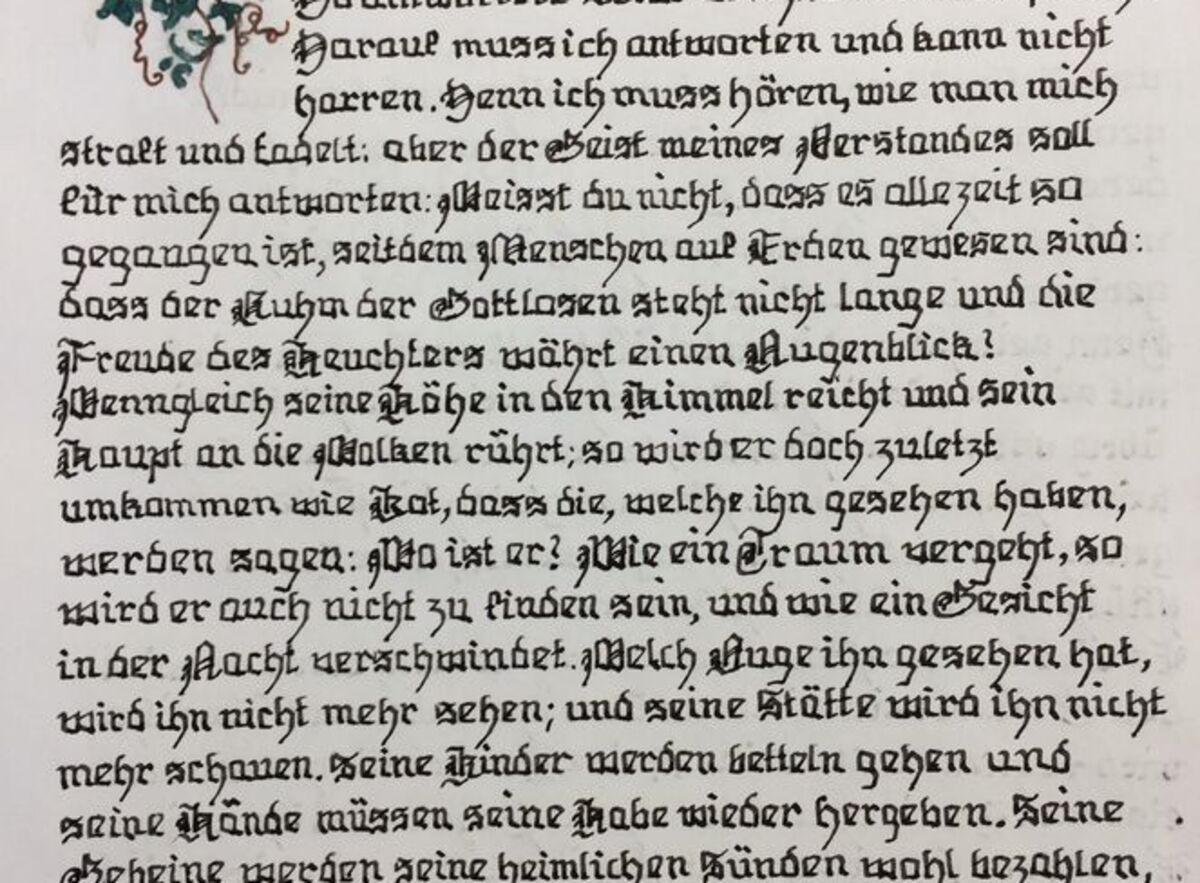 Darauf muss ich antworten und kann nicht
harren. Denn ich muss hören, wie man mich
straft und tadelt: aber der Geist meines Verstandes soll
für mich antworten: Weisst du nicht, dass es allezeit so
gegangen ist, seitdem Menschen auf Erden gewesen sind:
dass der Ruhm der Gottlosen steht nicht lange und die
Freude des Heuchlers währt einen Augenblick?
Wenngleich seine Höhe in den Himmel reicht und sein
Haupt an die Wolken rührt; so wird er doch zuletzt
umkommen wie Kot, dass die, welche ihn gesehen haben,
werden sagen: Wo ist er? Wie ein Traum vergeht, so
wird er auch nicht zu finden sein, und wie ein Gesicht
in der Nacht verschwindet. Welch Auge ihn gesehen hat,
wird ihn nicht mehr sehen; und seine Stätte wird ihn nicht
mehr schauen. Seine Kinder werden betteln gehen und
seine Hände müssen seine Habe wieder hergeben. Seine
Gebeine werden seine heimlichen Sünden wohl bezahlen,